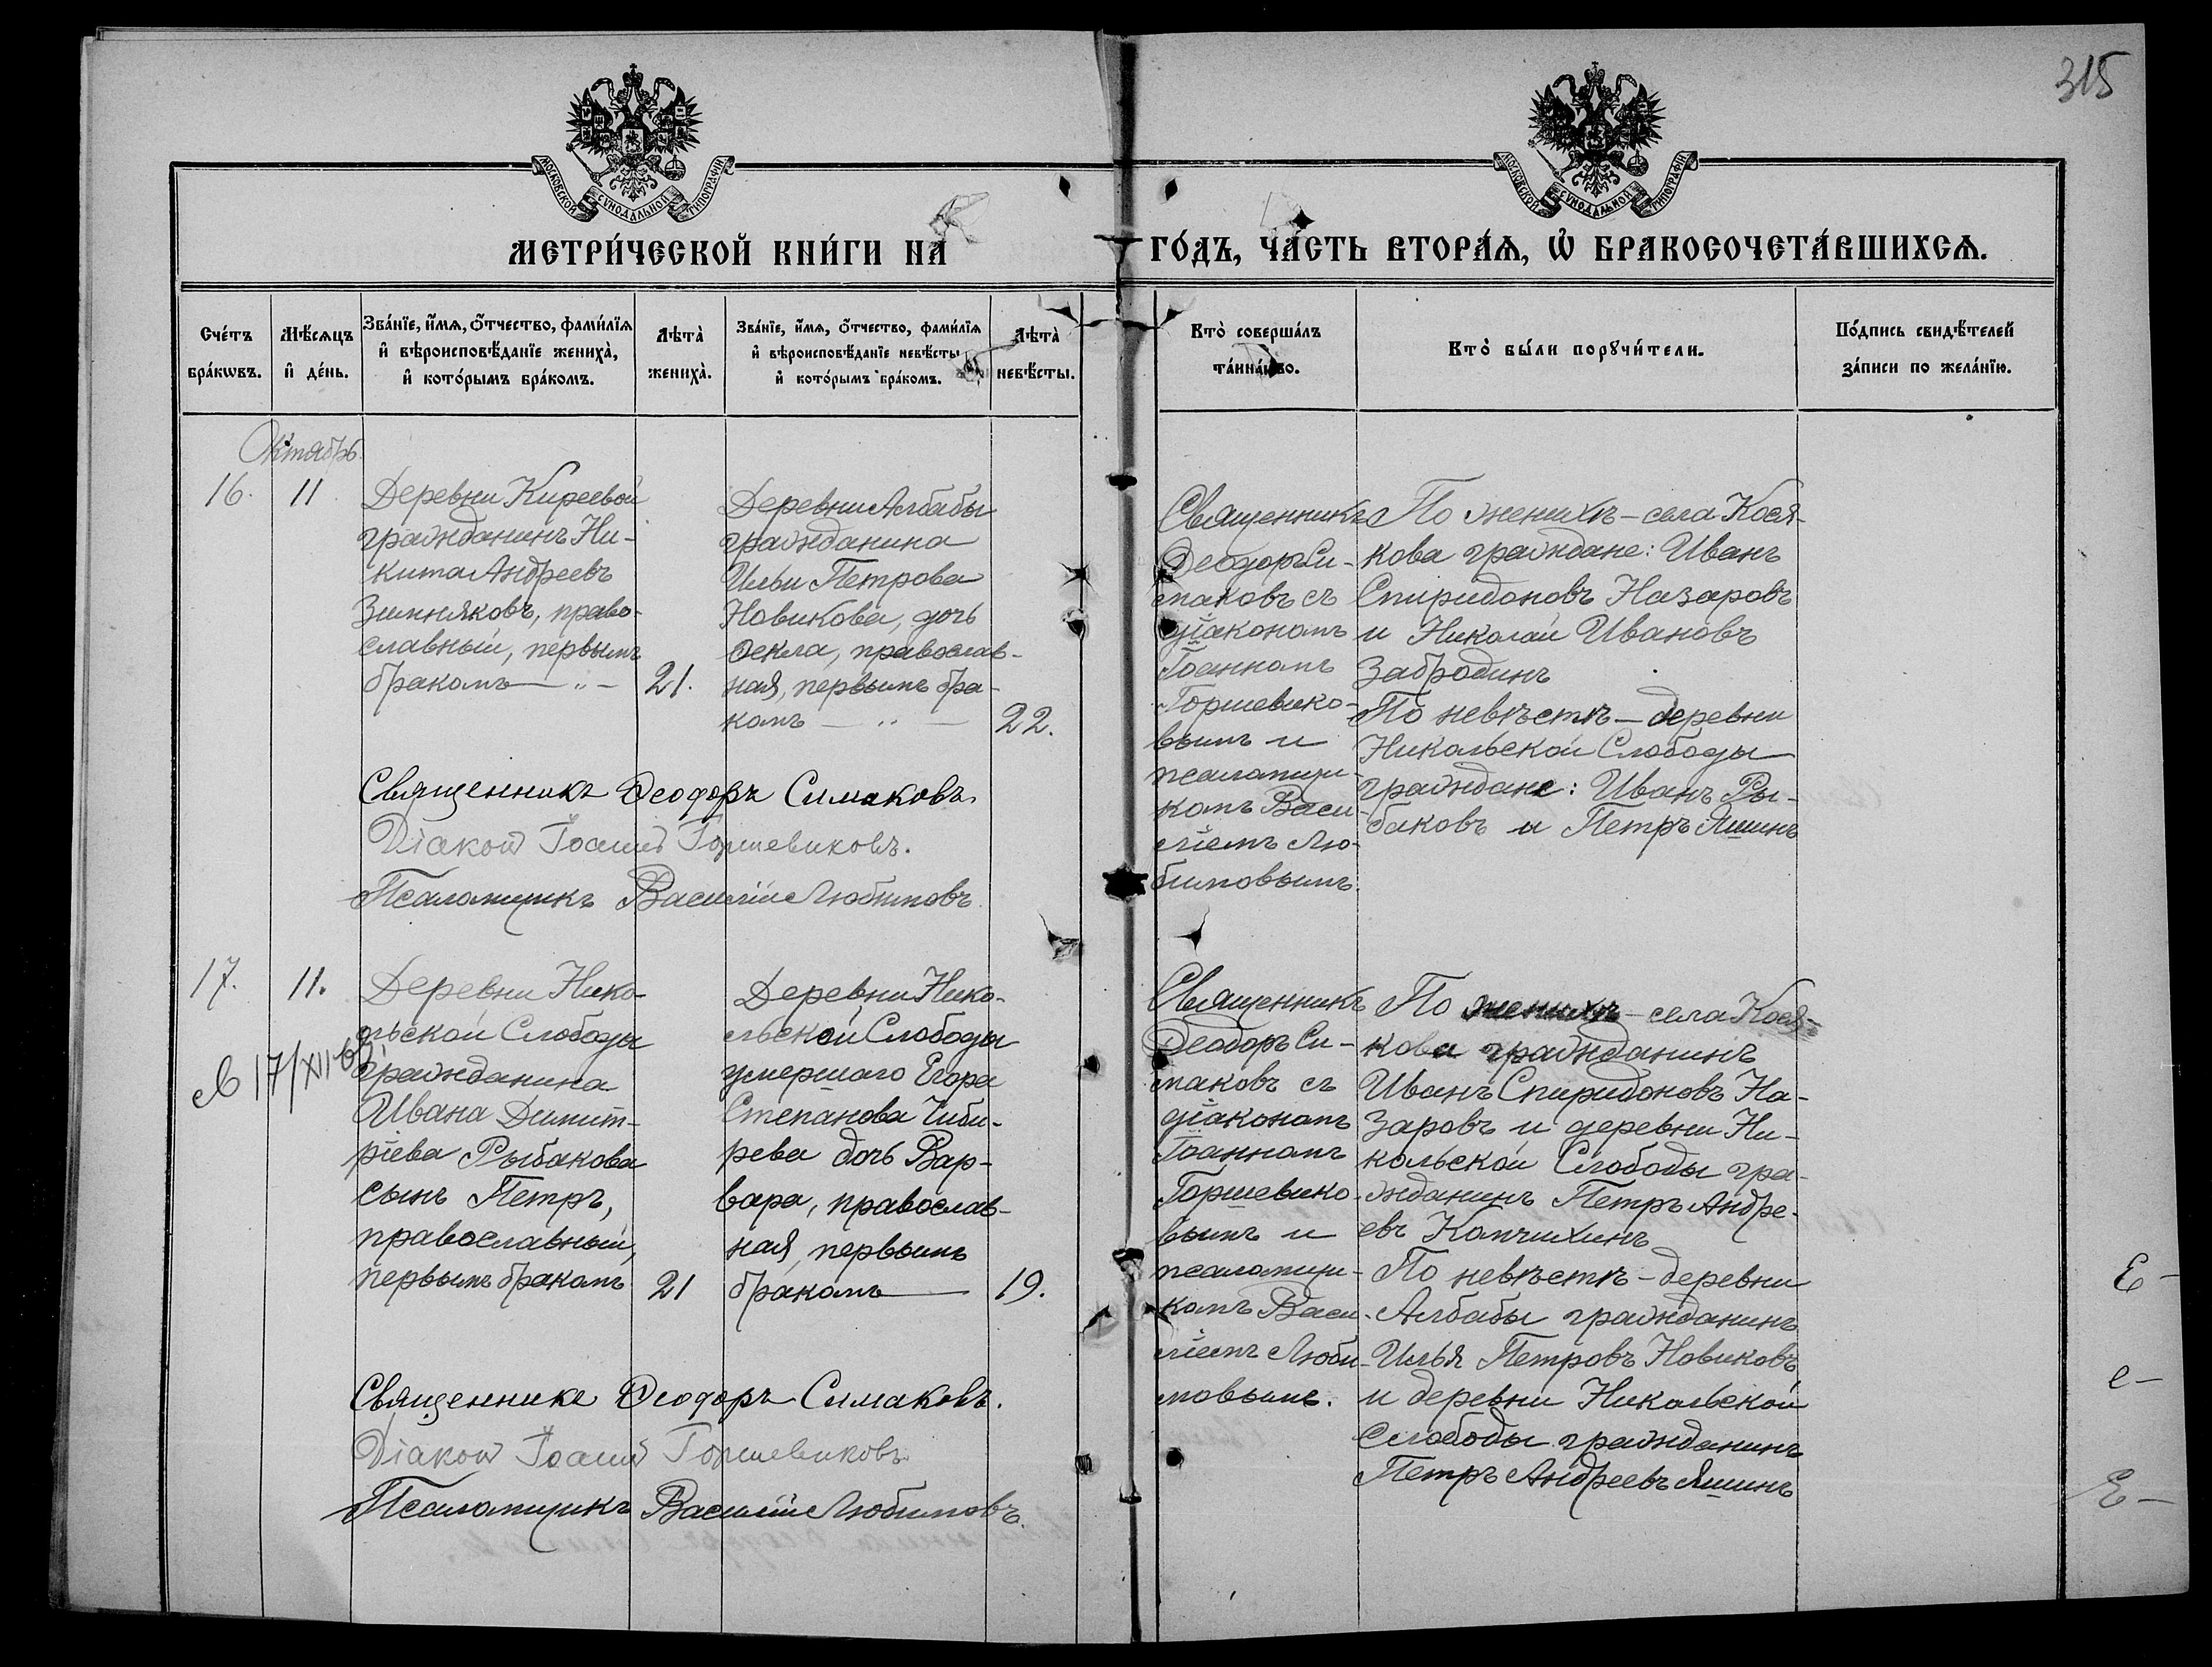 315
МОСКОВСКОЙ СѴНОДАЛЬНОЙ ТИПОГРАФІИ
МОСКОВСКОЙ СѴНОДАЛЬНОЙ ТИПОГРАФІИ
МЕТРИ́ЧЕСКОЙ КНИ́ГИ НА
ГО́ДЪ, ЧА́СТЬ ВТОРА́Ѧ, Ѽ БРАКОСОЧЕТА́ВШИХСѦ.
Сче́тъ
бра́кωвъ.
Мѣ́сѧцъ
и҆ де́нь.
Зва́нїе, и҆́мѧ, ѻ҆́тчество, фами́лїѧ
и҆ вѣроисповѣ́данїе жениха̀,
и҆ кото́рымъ бра́комъ.
Лѣта̀
жениха̀.
Зва́нїе, и҆́мѧ, ѻ҆́тчество, фами́лїѧ
и҆ вѣроисповѣ́данїе невѣ́сты
и҆ кото́рымъ бра́комъ.
Лѣта̀
невѣ́сты.
Кто̀ соверша́лъ
та́инство.
Кто̀ бы́ли порꙋчи́тели.
По́дпись свидѣ́телей
за́писи по жела́нїю.
Октябрь
16.
11
Деревни Киреевой
гражданинъ Ни-
кита Андреевъ
Зимняковъ, право-
славный, первымъ
бракомъ — „ —
21.
Деревни Албабы
гражданина
Ильи Петрова
Новикова, дочь
Ѳекла, православ-
ная, первымъ бра-
комъ — „ —
22.
Священникъ
Ѳеодоръ Си-
маковъ съ
діакономъ
Іоанномъ
Горшевико-
вымъ и
псаломщи-
комъ Васи-
ліемъ Лю-
бимовымъ.
По женихѣ — села Кося-
кова граждане: Иванъ
Спиридоновъ Назаровъ
и Николай Ивановъ
Забродинъ
По невѣстѣ — деревни
Никольской Слободы
граждане: Иванъ Ры-
баковъ и Петръ Яшинъ
Священникъ Ѳеодоръ Симаковъ.
Діаконъ Іоаннъ Горшевиковъ.
Псаломщикъ Василій Любимовъ.
17.
11.
св 17/XII-68
Деревни Нико-
льской Слободы
гражданина
Ивана Димит-
ріева Рыбакова
сынъ Петръ,
православный,
первымъ бракомъ
21
Деревни Нико-
льской Слободы
умершаго Егора
Степанова Чиби-
рева дочь Вар-
вара, православ-
ная, первымъ
бракомъ —
19.
Священникъ
Ѳеодоръ Си-
маковъ съ
діакономъ
Іоанномъ
Горшевико-
вымъ и
псаломщи-
комъ Васи-
ліемъ Люби-
мовымъ.
По женихѣ — села Кося-
кова гражданинъ
Иванъ Спиридоновъ На-
заровъ и деревни Ни-
кольской Слободы гра-
жданинъ Петръ Андре-
евъ Капчихинъ
По невѣстѣ — деревни
Албабы гражданинъ
Илья Петровъ Новиковъ,
и деревни Никольской
Слободы гражданинъ
Петръ Андреевъ Яшинъ
Е —
е —
Е —
Священникъ Ѳеодоръ Симаковъ.
Діаконъ Іоаннъ Горшевиковъ.
Псаломщикъ Василій Любимовъ.